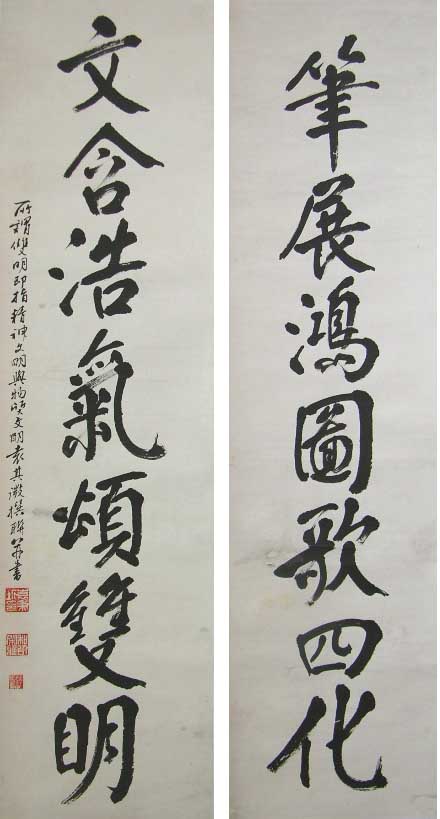 筆展鴻圖歌四化
文含浩氣頌雙明
所謂雙明即指精神文明與物質文明袁其濲撰聯並書